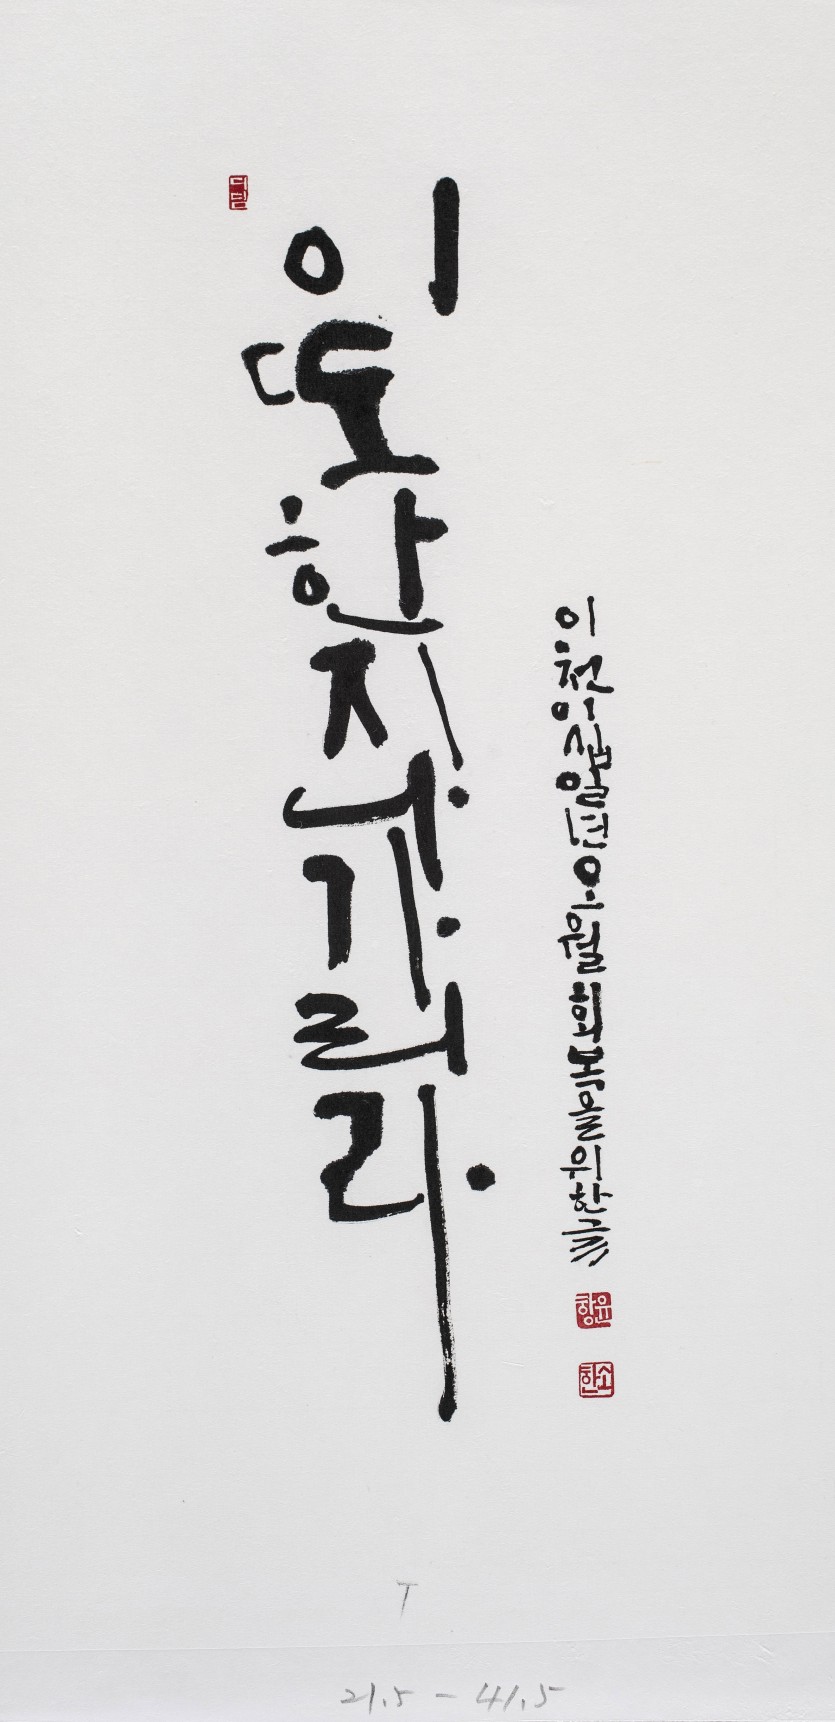 이또한지나가리라
이천이십일년오월회복을위한글
T
21.5 - 41.5